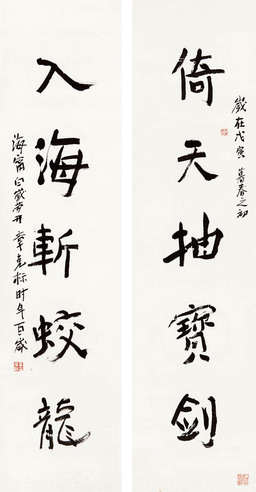 歲在戊寅暮春之初
倚天抽寶劍
入海斬蛟龍
海甯 章克标时年百歲